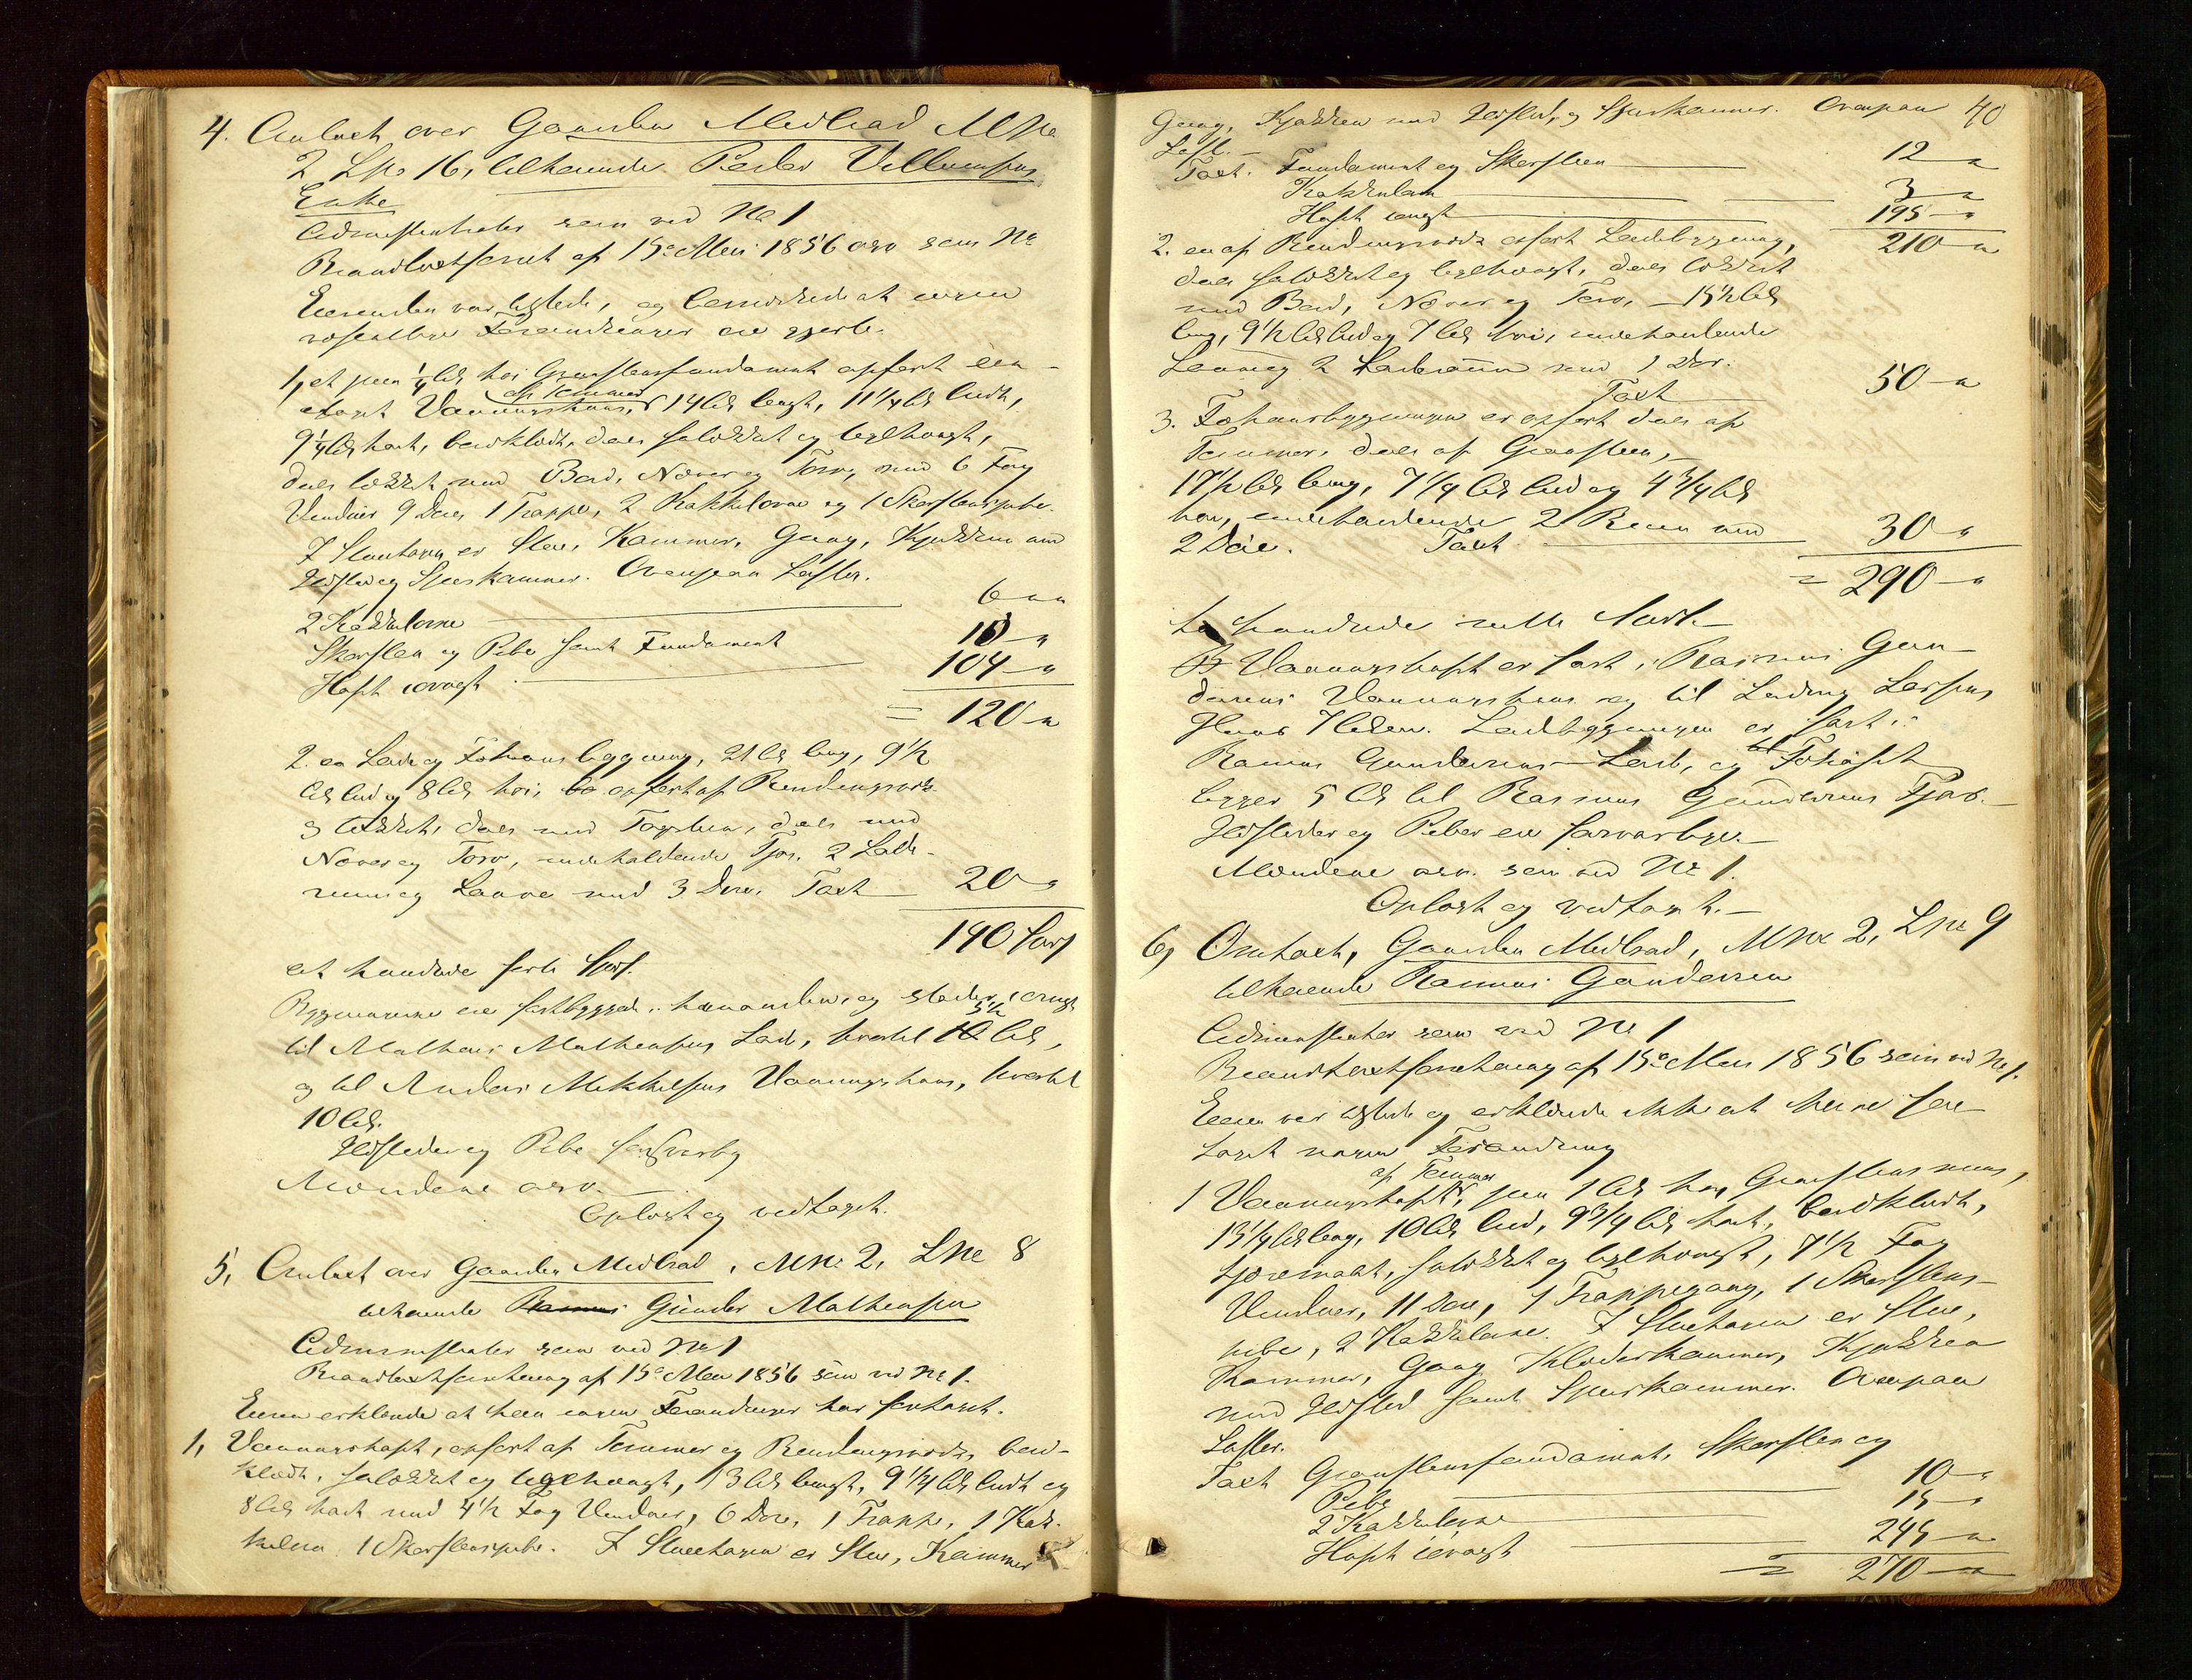 4. Omtaxt over Gaarden Medbraad MNo
2 LNo 16, tilhørende Peder Villumsens
Enke
Administrator som ved No 1
Brandtaxtforret. af 15de Mai 1856 osv som No
Eierinden var tilstede, og bemærkede at ingen
væsentlige Forandringer ere gjorte.
1, et paa 1/4 Al. høi Graastensfundament opført een
etages Vaaningshuus, af Tømmer 14 Al. langt, 11 1/4 Al. bredt,
9 1/4 Al. høit, bordklædt, deels sulækket og teglhængt,
deels tækket med Bord, Næver og Torv, med 6 Fag
Vinduer 9 Døre, 1 Trappe, 2 Kakkelovne og 1 Skorsteenspibe.
I Stueetagen er Stue, Kammer, Gang, Kjøkken med
Ildsted og Spiskammer. Ovenpaa Lofter.
2 Kakkelovne 6 " "
Skorsteen og Pibe samt Fundament 10 - "
Huset iøvrigt 104 - "
= 120 - "
2. en Lade og Fæhuusbygning, 21 Al. lang, 9 1/2
Al. bred og 8 Al. høi, opført af Bindingsværk
og tækket, deels med Tagsteen, deels med
Næver og Torv, indeholdende Fjøs, 2 Lade-
rum og Laave med 3 Døre. Taxt 20 - "
140 Spd
et hundrede førti Spd.
Bygningerne ere sambyggede hinanden, og støder iøvrigt
til Mathias Mathiesens Lade, hvortil 5 1/2 Al.,
og til Anders Mikkelsens Vaaningshuus, hvortil
10 Al.
Ildsteder og Pibe forsvarlig
Mændene osv.
Oplæst og vedtaget.
5, Omtaxt over Gaarden Medbraad, MNo 2, LNo 8
tilhørende Gunder Mathiesen
Administrator som ved No 1
Brandtaxtforretning af 15de Mai 1856 som ved No 1.
Eieren erklærede at have ingen Forandringer har foretaget.
1, Vaaningshuset, opført af Tømmer og Bindingsværk, bord-
klædt, sulækket og teglhængt, 13 Al. langt, 9 1/4 Al. bredt og
8 Al. høit med 4 1/2 Fag Vinduer, 6 Døre, 1 Trappe, 1 Kak-
kelovn 1 Skorsteenspibe. I Stueetagen er Stue, Kammer
Gang, Kjøkken med Ildsted, og Spiskammer. Ovenpaa 40
Loft.
Taxt. Fundament og Skorsteen 12 - "
Kakkelovn 3 - "
Huset iøvrigt 195 - "
210 - "
2. en af Bindingsværk opført Ladebygning,
deels sulækket og teglhængt, deels tækket
med Bord, Næver og Torv, 15 1/2 Al.
lang, 9 1/2 Al. bred og 7 Al. høi, indeholdende
Laave og 2 Laderum med 1 Dør.
Taxt 50 - "
3. Fæhuusbygningen er opført deels af
Tømmer, deels af Graasteen,
17 1/2 Al. lang, 7 1/4 Al. bred og 4 3/4 Al.
høi, indeholdende 2 Rum med
2 Døre. Taxt 30 - "
= 290 - "
to hundrede nitti Spd.
Vaaningshuset er fast i Rasmus Gun-
dersens Vaaningshuus og til Ludvig Larsens
Huus 7 Alen. Ladebygningen er fast i
Rasmus Gundersens Lade, og til Fæhuset
ligger 5 Al. til Rasmus Gundersens Fjøs.
Ildsteder og Piber ere forsvarlige.
Mændene osv. som ved No 1.
Oplæst og vedtaget.
6, Omtaxt, Gaarden Medbraad, MNo 2, LNo 9
tilhørende Rasmus Gundersen
Administrator som ved No 1
Brandtaxtforretning af 15de Mai 1856 som ved No 1.
Eieren var tilstede og erklærede ikke at have fore
taget nogen Forandring
1 Vaaningshuset, af Tømmer paa 1 Al. høi Graasteensmuur,
13 1/4 Al. lang, 10 Al. bred, 9 3/4 Al. høit, bordklædt,
sulækket og teglhængt, 7 1/2 Fag
Vinduer, 11 Døre, 1 Trappegang, 1 Skorsteens-
pibe, 2 Kakkelovne. I Stueetagen er Stue,
Kammer, Gang, Klæderkammer, Kjøkken
med Ildsted samt Spiskammer. Ovenpaa
Lofter.
Taxt Graasteensfundament, Skorsteen og
Pibe 10 - "
2 Kakkelovne 15 - "
Huset iøvrigt 245 - "
= 270 - "